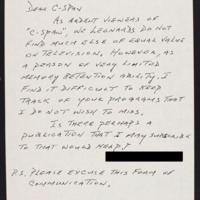 Dear C-SPAN
As ardent viewers of
"C-SPAN", we Leonards do not
find much else of equal value
on television. However, as
a person of very limited
memory retention ability, I
find it difficult to keep
track of your programs that
I do not wish to miss.
Is there perhaps a
publication that I may subscribe
to that would help?
P.S. Please excuse this form of
communication.